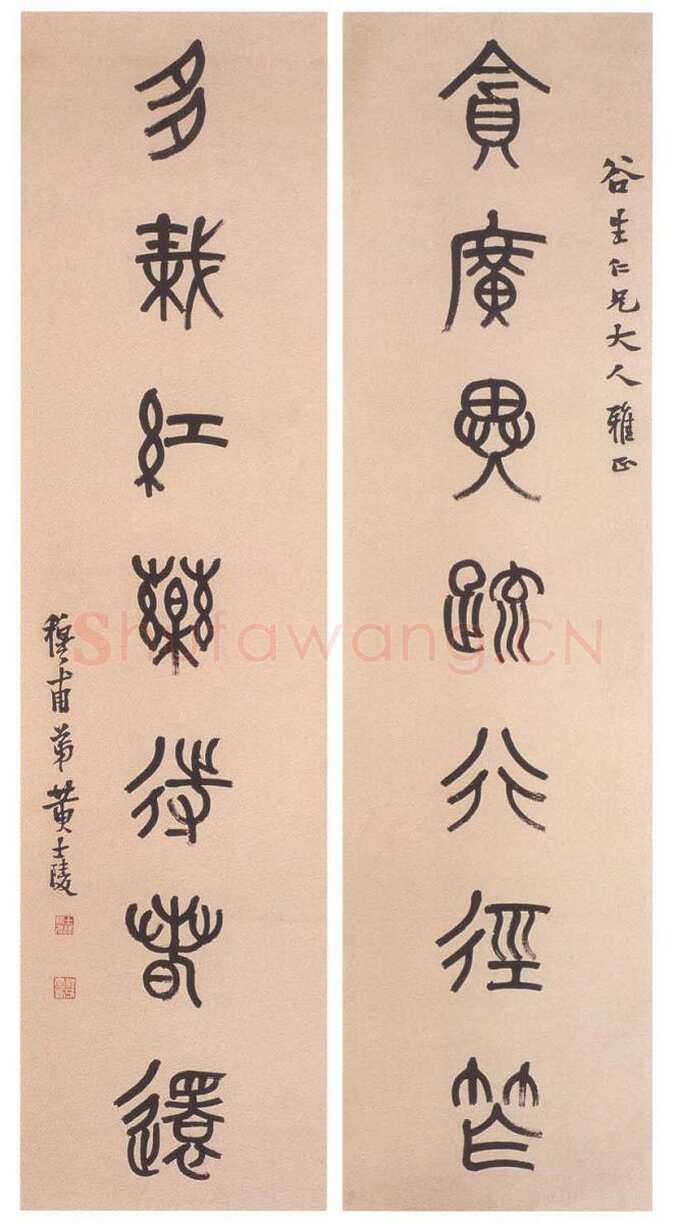 谷生仁兄大人雅正
貪廣異疏行徑笮
多栽紅藥待春還
穆甫弟黄士陵
Shufawang.CN